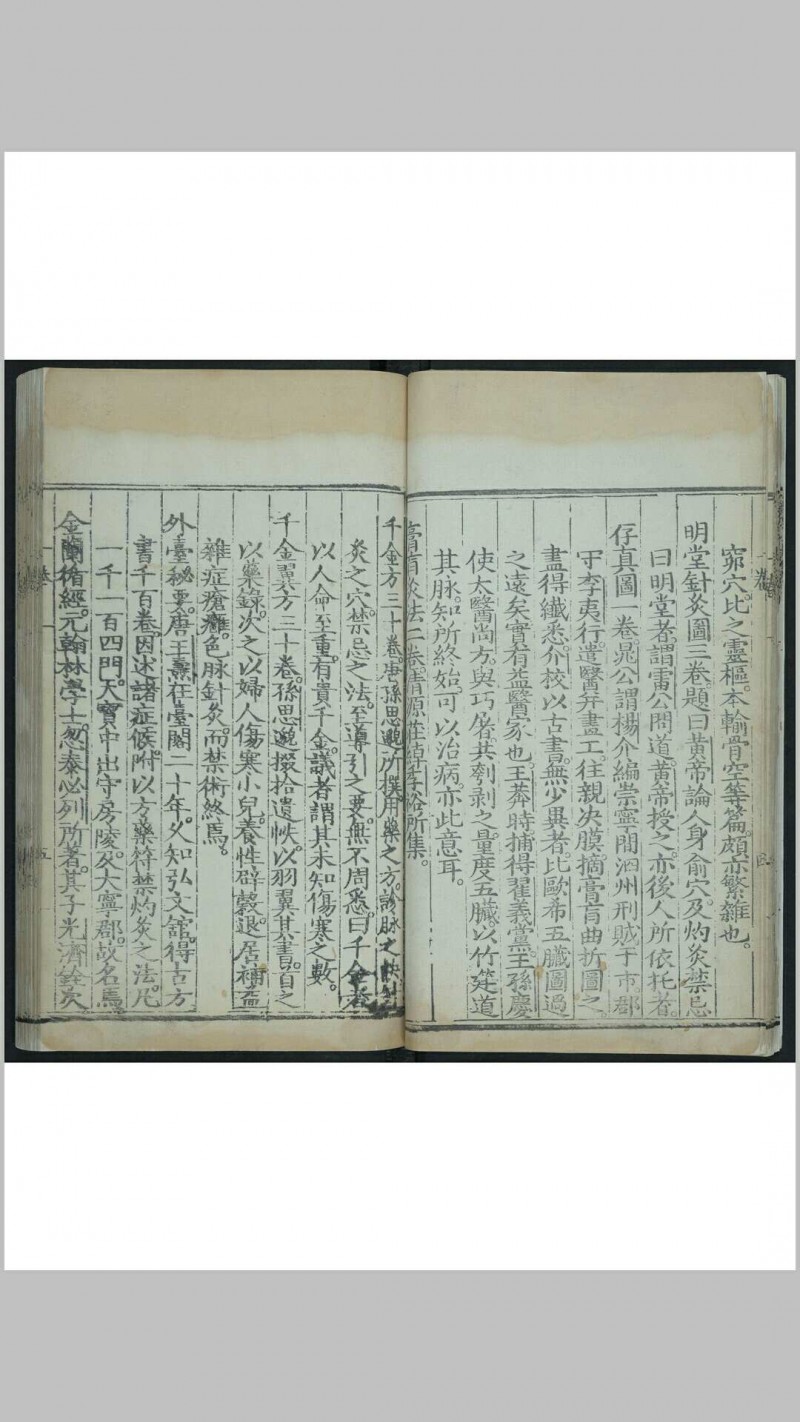 窌穴。比之靈樞。本輸骨空等篇。頗亦繁雜也。
明堂針灸圖三卷。題曰黃帝論人身俞穴。及灼灸禁忌
曰明堂者。謂雷公問道。黃帝授之。亦後人所依托者。
存真圖一卷。晁公謂楊介編。崇寧間泗州刑賊于市。郡
守李夷行。遣醫并畫工。往親决膜。摘膏肓曲折圖之。
盡得纖悉。介校以古書。無少異者。比歐希五臟圖過
之遠矣。實有益醫家也。王莽時捕得翟義黨王孫慶
使太醫尚方。與巧屠。共刳剥之。量度五臟。以竹筳道
其脉。知所終始。可以治病。亦此意耳。
膏肓灸法二卷。清源莊綽季裕所集。
千金方三十卷。唐孫思邈所撰。用藥之方。診脉之訣。針
灸之穴。禁忌之法。至導引之要。無不周悉。曰千金者
以人命至重。有貴千金。議者謂其未知傷寒之數。
千金翼方三十卷。孫思邈掇拾遺帙。以羽翼其書。首之
以藥錄。次之以婦人傷寒小兒。養性辟穀。退居補益
雜症瘡癰。色脉針灸。而禁術終焉。
外臺秘要。唐王燾在臺閣二十年。久知弘文舘。得古方
書千百卷。因述諸症候。附以方藥符禁灼灸之法。凡
一千一百四門。天寶中出守房陵。及大寧郡。故名焉
金蘭循經。元翰林學士。忽泰必列所著。其子光濟銓次